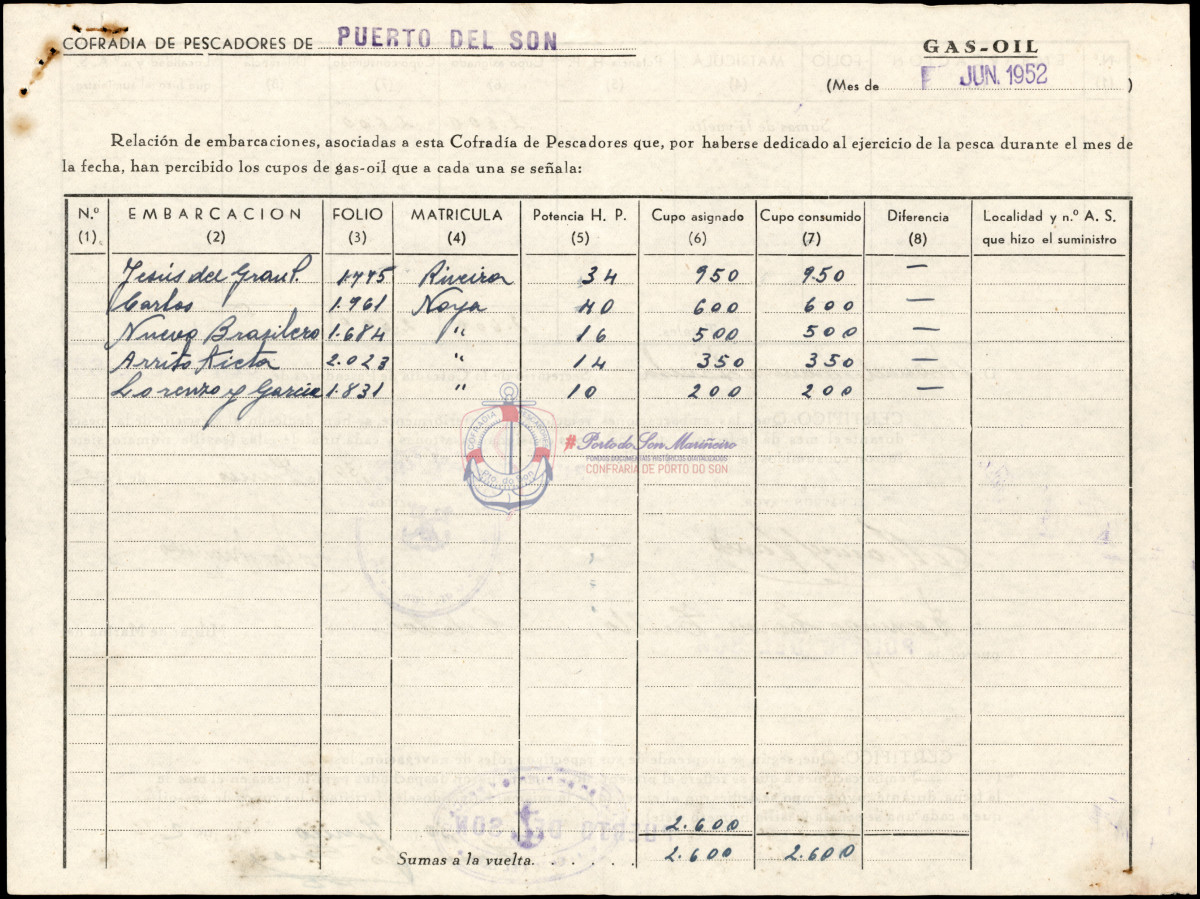 COFRADIA DE PESCADORES DE PUERTO DEL SON
GAS-OIL
(Mes de JUN. 1952 )
Relación de embarcaciones, asociadas a esta Cofradía de Pescadores que, por haberse dedicado al ejercicio de la pesca durante el mes de
la fecha, han percibido los cupos de gas-oil que a cada una se señala:
N.º EMBARCACION FOLIO MATRICULA Potencia H. P. Cupo asignado Cupo consumido Diferencia Localidad y n.º A. S.
(1) (2) (3) (4) (5) (6) (7) (8) que hizo el suministro
Jesús del Gran P. 1.775 Riveira 34 950 950 —
Carlos 1.961 Noya 40 600 600 —
Nuevo Brasilero 1.684 " 16 500 500 —
2.023 " 14 350 350 —
Lorenzo y García 1.831 " 10 200 200 —
COFRADIA PESCADORES
Pto. do Son
#Porto do Son Mariñeiro
FONDOS DOCUMENTAIS HISTÓRICOS DIXITALIZADOS
CONFRARÍA DE PORTO DO SON
2.600
Sumas a la vuelta. . . . . . . 2.600 2.600
PUERTO DEL SON